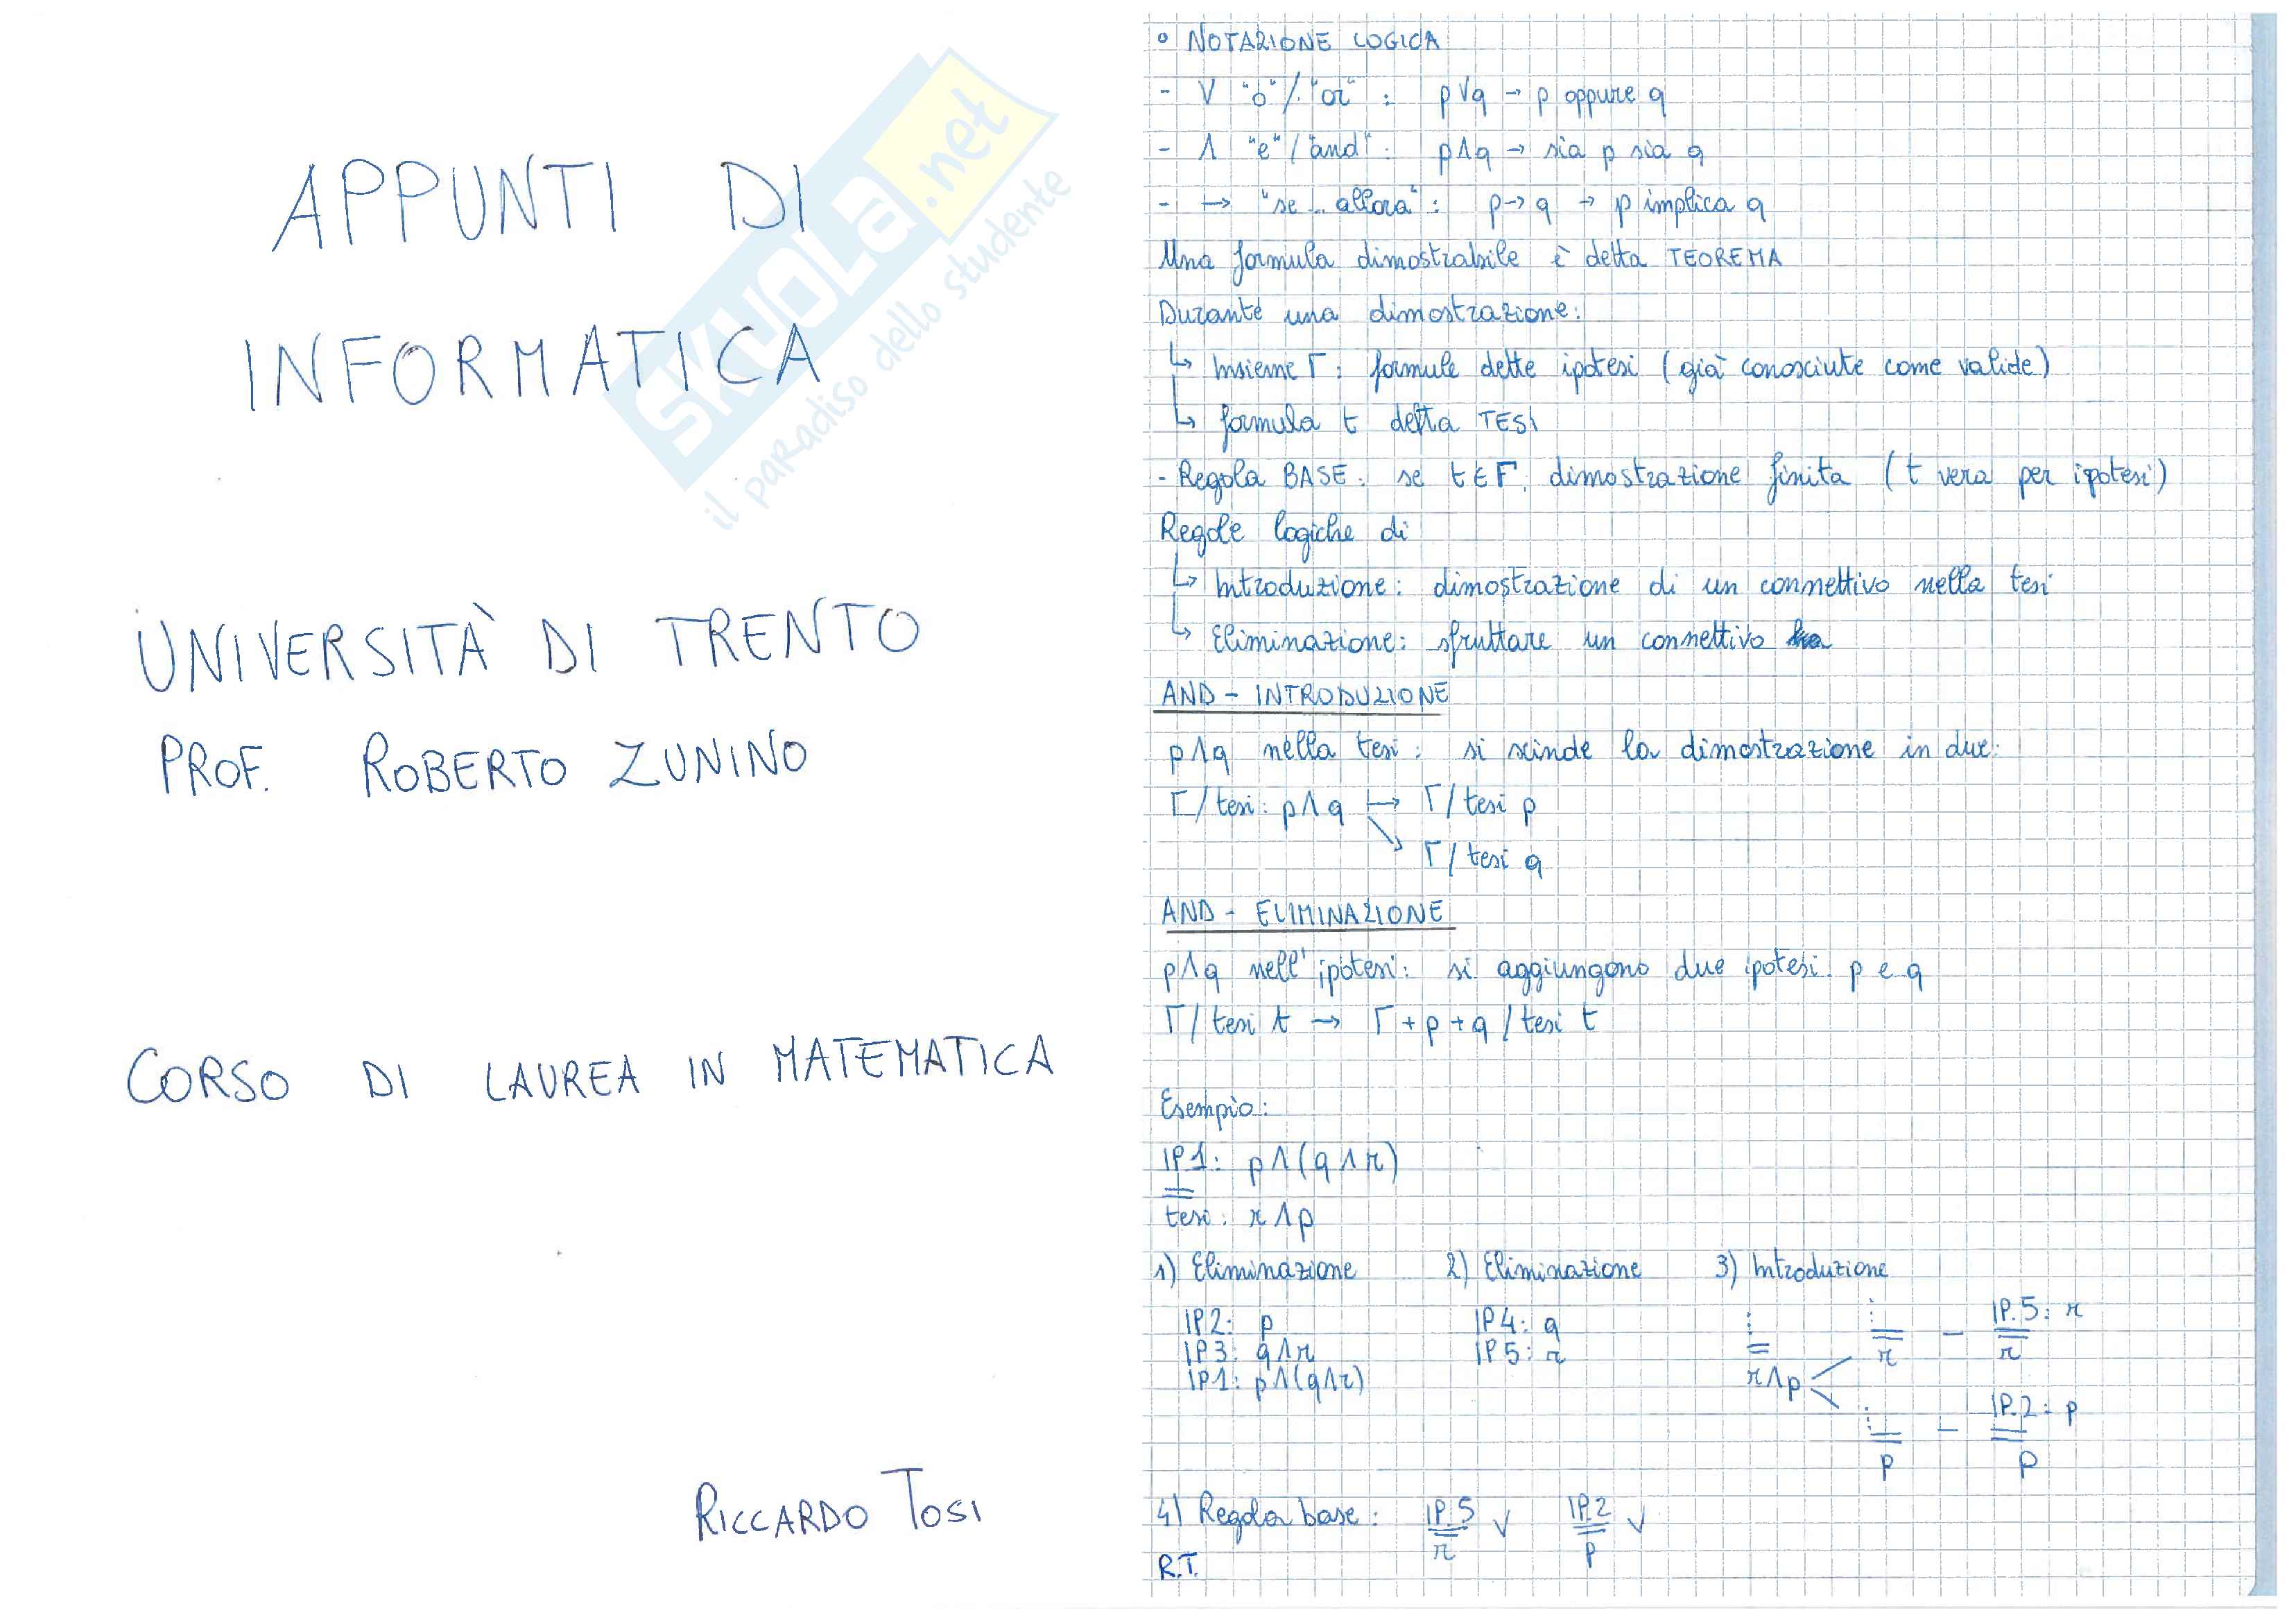 APPUNTI DI
INFORMATICA
UNIVERSITÀ DI TRENTO
PROF. ROBERTO ZUNINO
CORSO DI LAUREA IN MATEMATICA
RICCARDO TOSI
SKUOLA.net
il paradiso dello studente
° NOTAZIONE LOGICA
- V "o"/"or" : p V q → p oppure q
- Λ "e"/"and" : p Λ q → sia p sia q
- ↦ "se... allora" : p → q → p implica q
Una formula dimostrabile è detta TEOREMA
Durante una dimostrazione:
↳ Insieme Γ: formule dette ipotesi (già conosciute come valide)
↳ formula t detta TESI
- Regola BASE: se t ∈ Γ, dimostrazione finita (t vera per ipotesi)
Regole logiche di
↳ Introduzione: dimostrazione di un connettivo nella tesi
↳ Eliminazione: sfruttare un connettivo
AND - INTRODUZIONE
p Λ q nella tesi: si scinde la dimostrazione in due:
Γ/tesi: p Λ q ↦ Γ/tesi p
↘ Γ/tesi q
AND - ELIMINAZIONE
p Λ q nell'ipotesi: si aggiungono due ipotesi: p e q
Γ/tesi t → Γ + p + q / tesi t
Esempio:
IP1: p Λ (q Λ r)
tesi: r Λ p
1) Eliminazione 2) Eliminazione 3) Introduzione
IP2: p IP4: q ⋮ ⋮ IP.5: r
IP3: q Λ r IP5: r r – r
IP1: p Λ (q Λ r) r Λ p
⋮ – IP.2: p
p p
4) Regola base: IP.5 √ IP.2 √
r p
R.T.